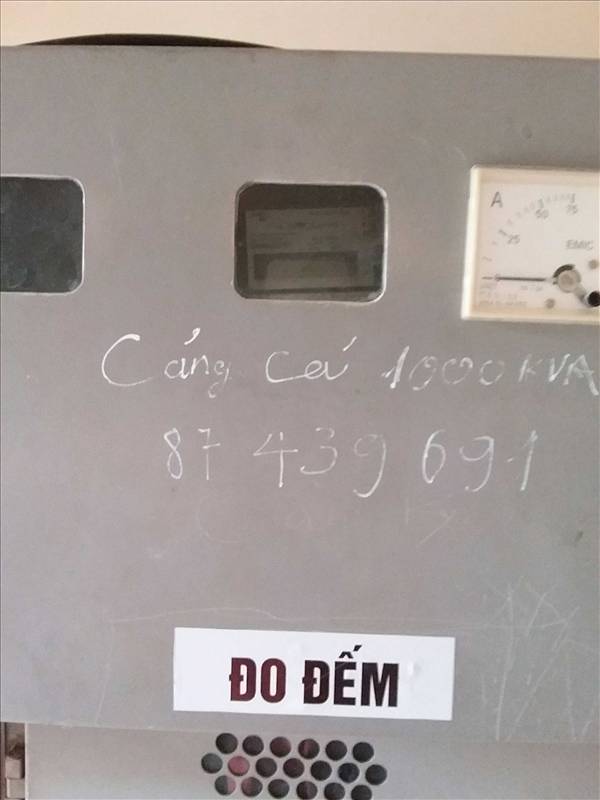 A
25
50
75
EMIC
Cảng Cá 1000 KVA
87 439 691
ĐO ĐẾM